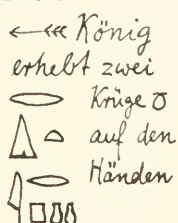 König
erhebt zwei
Krüge
auf den
Händen